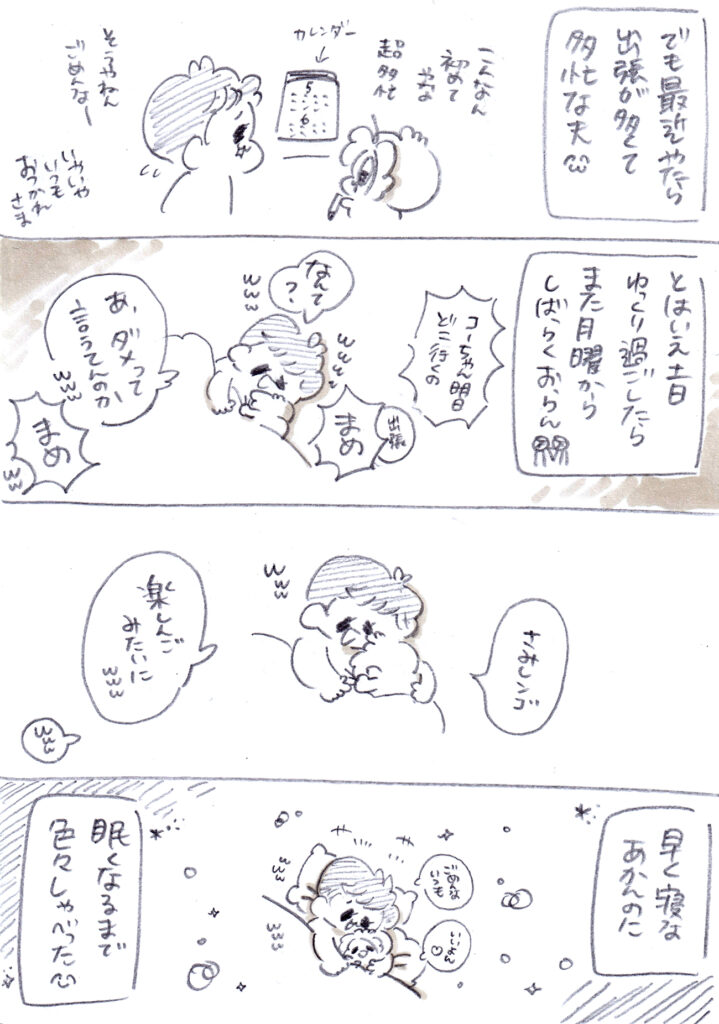 でも最近やたら
出張が多くて
多忙な夫
カレンダー
5
6
こんなん
初めて
やな
超多忙
そうやねん
ごめんなー
いやいや
いつも
おつかれ
さま
とはいえ土日
ゆっくり過ごしたら
また月曜から
しばらくおらん
コーちゃん明日
どこ行くの
出張
まめ
www
なんて
?
www
あ、ダメって
言うてんのか
www
まめ
www
さみしンゴ
www
楽しんご
みたいに
www
www
早く寝な
あかんのに
ごめんな
いつも
いいよん
www
www
眠くなるまで
色々しゃべった